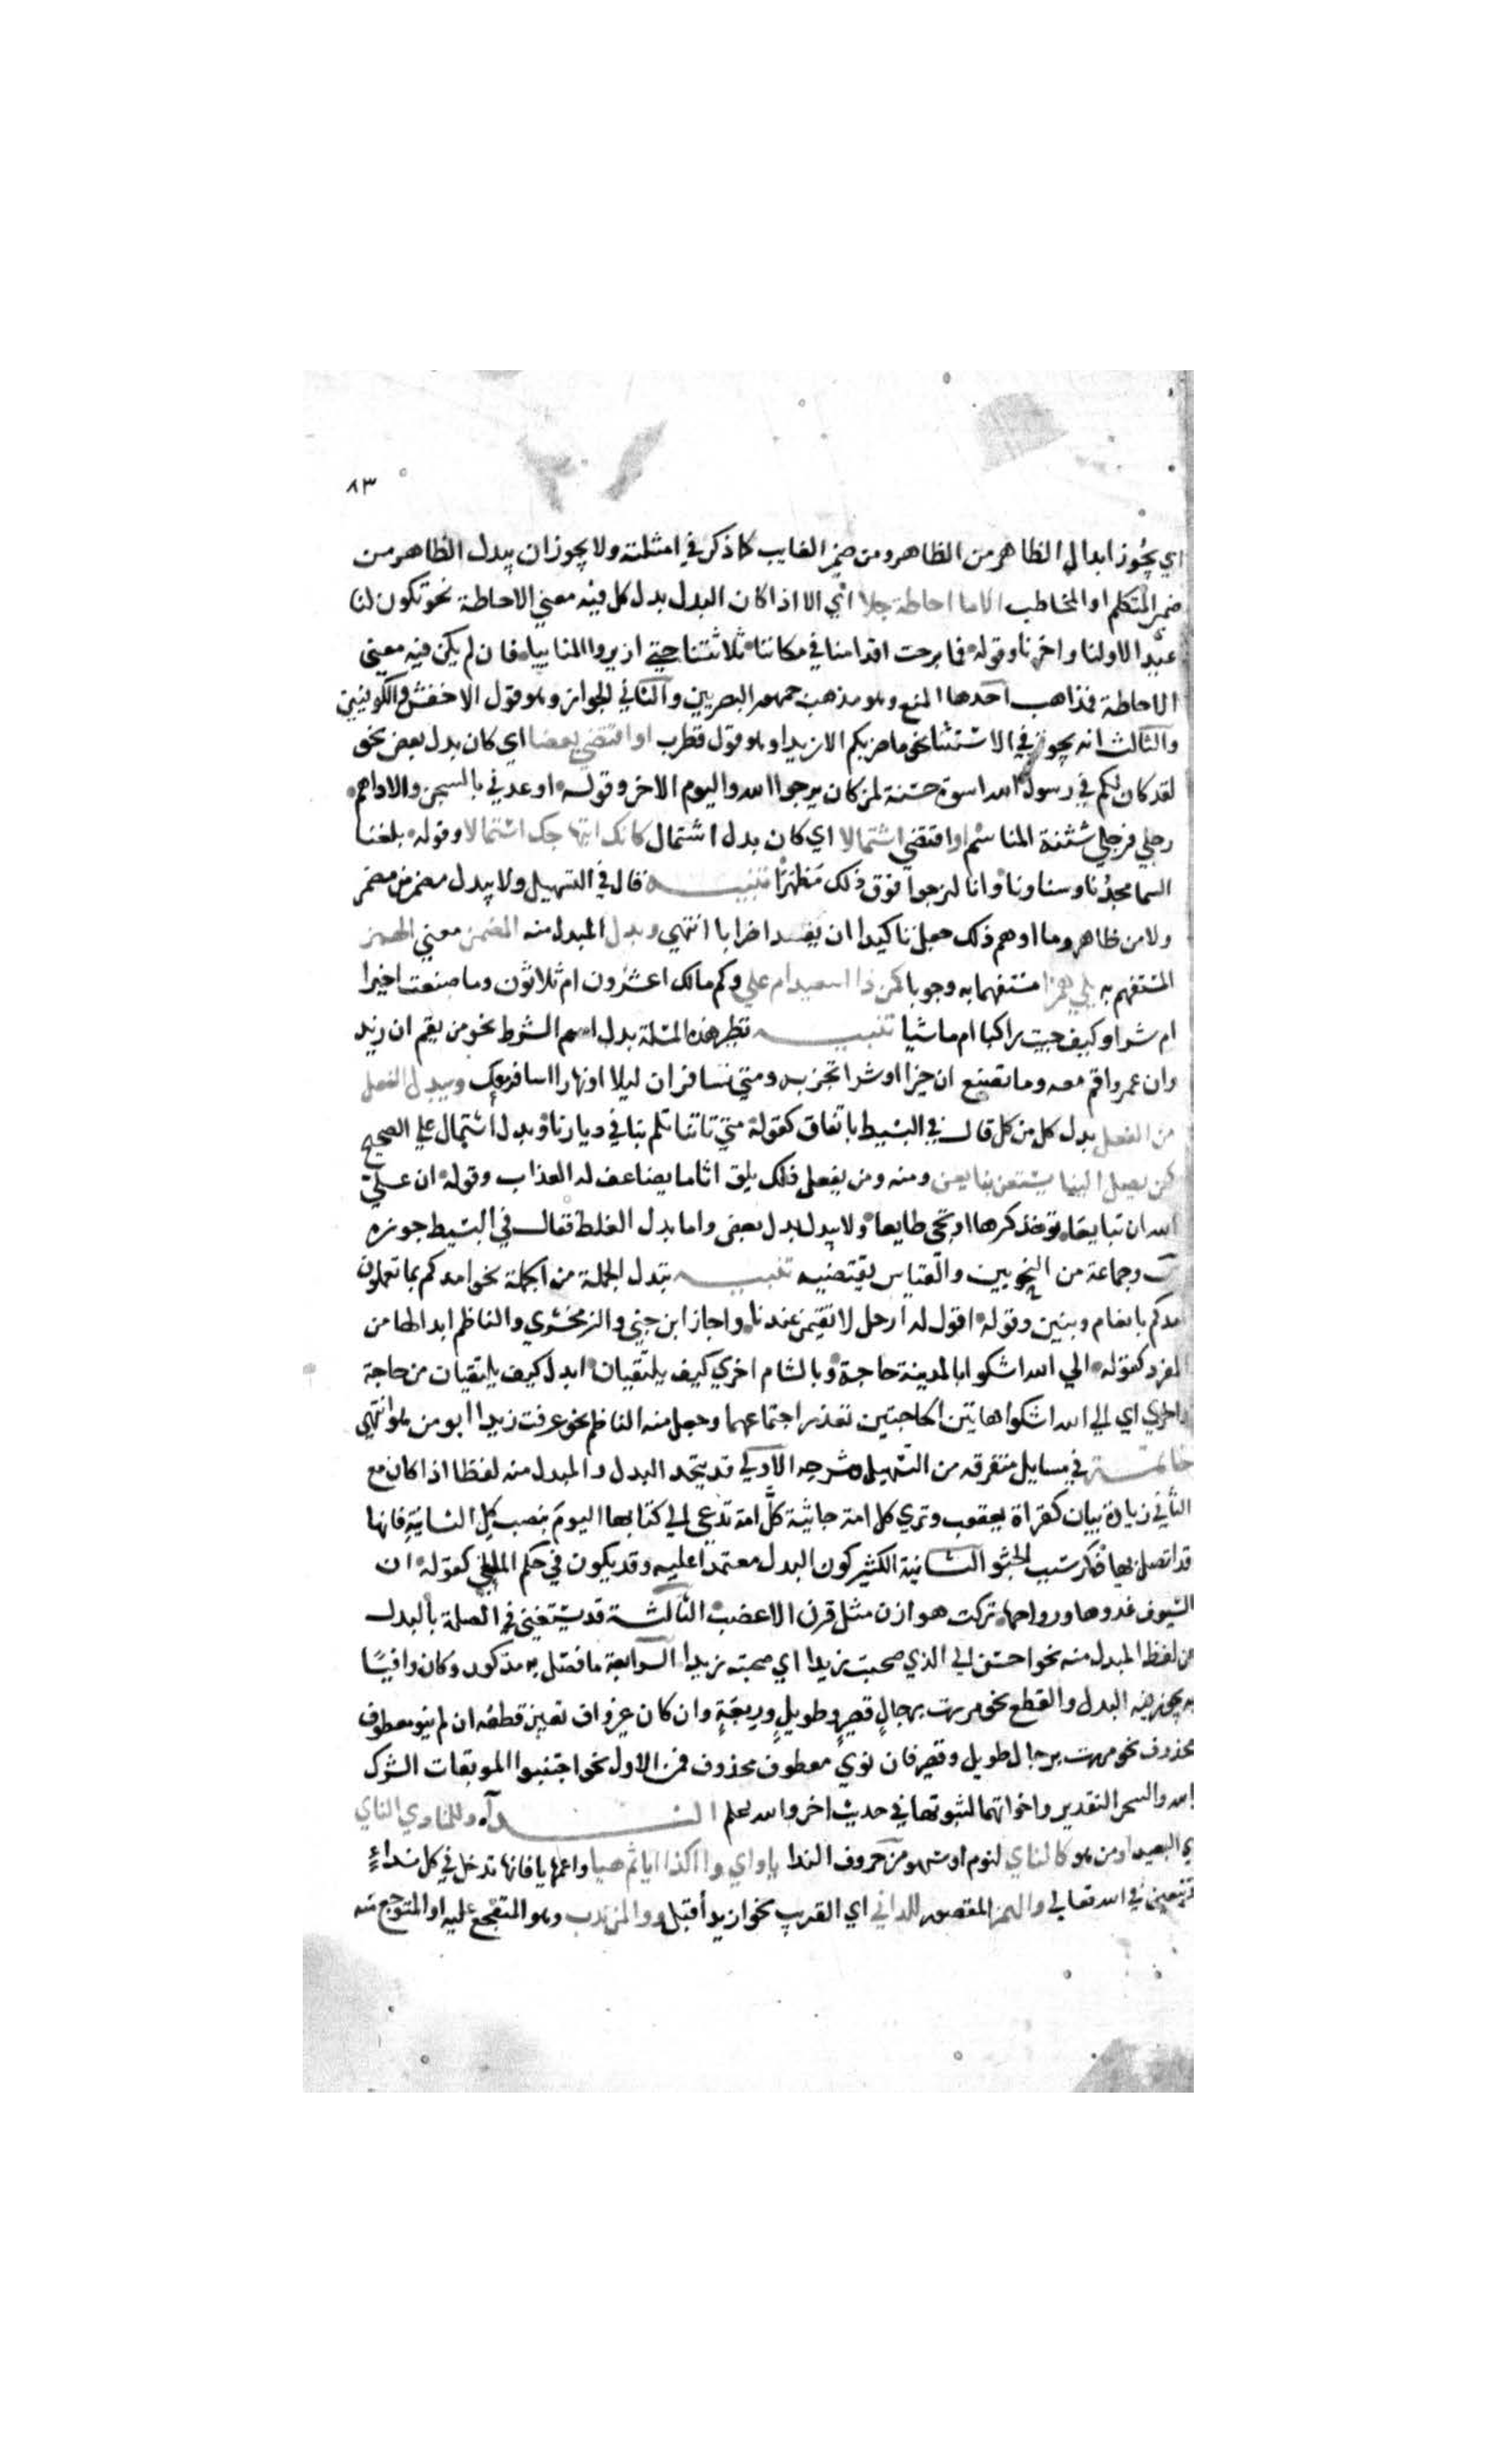 ٨٣
اي يجوز ابدال الظاهر من الظاهر ومن ضمير الغايب كما ذكر في امثلته ولا يجوز ان يبدل الظاهر من
ضمير المتكلم او المخاطب الا ما احاطة جلا اي الا اذا كان البدل بدل كل فيه معني الاحاطة نحو تكون لنا
عيدا لاولنا واخرنا وقوله فما برحت اقدامنا في مكاننا ثلاثتنا حتي ازيروا المنائيا فان لم يكن فيه معني
الاحاطة فمذاهب احدها المنع وهو مذهب جمهور البصريين والثاني الجواز وهو قول الاخفش والكوفيين
والثالث انه يجوز في الاستثنا نحو ما ضربكم الا زيدا وهو قول قطرب او اقتضي بعضا اي كان بدل بعض نحو
لقد كان لكم في رسول الله اسوة حسنة لمن كان يرجوا الله واليوم الاخر وقوله اوعدني بالسجن والاداهم
رجلي فرجلي شثنة المناسم او اقتضي اشتمالا اي كان بدل اشتمال كانك ابتهاجك اشتمالا وقوله بلغنا
السما مجدنا وسناونا وانا لنرجوا فوق ذلك مظهرا تنبيه قال في التسهيل ولا يبدل مضمر من مضمر
ولا من ظاهر وما اوهم ذلك جعل تاكيدا ان يفد اضرابا انتهي وبدل المبدل منه المضمن معني الهمز
المستفهم به يلي همزا مستفهما به وجوبا كمن ذا اسعيد ام علي وكم مالك اعشرون ام ثلاثون وما صنعت اخيرا
ام شرا وكيف جيت راكبا ام ماشيا تنبيه نظير هذه المسئلة بدل اسم الشرط نحو من يقم ان زيد
وان عمرو اقم معه وما تصنع ان خيرا او شرا تجز به ومتي تسافر ان ليلا او نهارا اسافر معك ويبدل الفعل
من الفعل بدل كل من كل قال في البسيط باتفاق كقوله متي تاتنا تلمم بنا في ديارنا وبدل اشتمال علي الصحيح
كمن يصل الينا يستعن بنا يعن ومنه ومن يفعل ذلك يلق اثاما يضاعف له العذاب وقوله ان علي
الله ان تبايعا توخذ كرها او تجي طايعا ولا يبدل بدل بعض واما بدل الغلط فقال في البسيط جوزه
وجماعة من النحويين والقياس يقتضيه تنبيه تبدل الجملة من الجملة نحو امدكم بما تعملون
امدكم بانعام وبنين وقوله اقول له ارحل لا تقيمن عندنا واجاز ابن جني والزمخشري والناظم ابدالها من
المفرد كقوله الي الله اشكوا بالمدينة حاجة وبالشام اخري كيف يلتقيان ابدل كيف يلتقيان من حاجة
واخري اي الي الله اشكوا هاتين الحاجتين تعذر اجتماعهما وجعل منه الناظم نحو عرفت زيدا ابو من هو انتهي
خاتمة في مسايل متفرقه من التسهيل وشرحه الاولي قد يتحد البدل والمبدل منه لفظا اذا كان مع
الثاني زيادة بيان كقراة يعقوب وتري كل امة جاثية كل امة تدعي الي كتابها اليوم بنصب كل الثانية فانها
قد اتصل بها ذكر سبب الجثو الثانية الكثير كون البدل معتمدا عليه وقد يكون في حكم الملغي كقوله ان
السيوف غدوها ورواحها تركت هوازن مثل قرن الاعضب الثالثة قد يستغني في الصلة بالبدل
من لفظ المبدل منه نحو احسن الي الذي صحبت زيدا اي صحبته زيدا الرابعة ما فصل به مذكور وكان وافيا
به يجوز فيه البدل والقطع نحو مررت برجال قصير وطويل وربعة وان كان غير واف تعين قطعه ان لم ينو معطوف
محذوف نحو مررت برجال طويل وقصير فان نوي معطوف محذوف فمن الاول نحو اجتنبوا الموبقات الشرك
بالله والسحر التقدير واخواتهما لثبوتها في حديث اخر والله اعلم النداء وللمنادي الناي
اي البعيد او من هو كالناي لنوم او سهو من حروف الندا يا واي وا اكذا ايا ثم هيا واعمها يا فانها تدخل في كل نداء
وتتعين في الله تعالي والهمز المقصور للداني اي القريب نحو ازيد اقبل ووا لمن ندب وهو المتفجع عليه او المتوجع منه